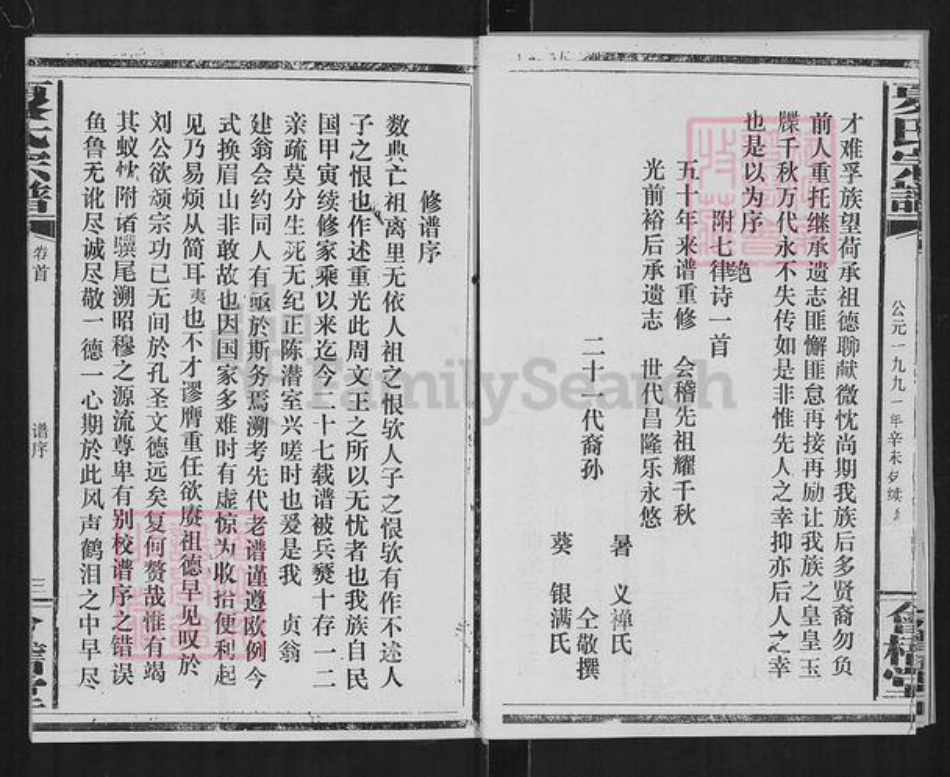 夏氏宗譜
公元一九九一年辛未夕续
会稽堂
才难孚族望荷承祖德聊献微忱尚期我族后多贤裔勿负
前人重托继承遗志匪懈匪怠再接再励让我族之皇皇玉
牒千秋万代永不失传如是非惟先人之幸抑亦后人之幸
也是以为序
附七律诗一首
绝
五十年来谱重修 会稽先祖耀千秋
光前裕后承遗志 世代昌隆乐永悠
二十一代裔孙
暑 义禅氏
仝敬撰
葵 银满氏
修谱序
数典亡祖离里无依人祖之恨欤人子之恨欤有作不述人
子之恨也作述重光此周文王之所以无忧者也我族自民
国甲寅续修家乘以来迄今二十七载谱被兵燹十存一二
亲疏莫分生死无纪正陈潜室兴嗟时也爰是我 贞翁
建翁会约同人有亟於斯务焉溯考先代老谱谨遵欧例今
式换眉山非敢故也因国家多难时有虚惊为收拾便利起
见乃易烦从简耳夷也不才谬膺重任欲赓祖德早见叹於
刘公欲颂宗功已无间於孔圣文德远矣复何赘哉惟有竭
其蚁忱附诸骥尾溯昭穆之源流尊卑有别校谱序之错误
鱼鲁无讹尽诚尽敬一德一心期於此风声鹤泪之中早尽
夏氏宗譜
卷首
谱序
三
会稽堂
FamilySearch